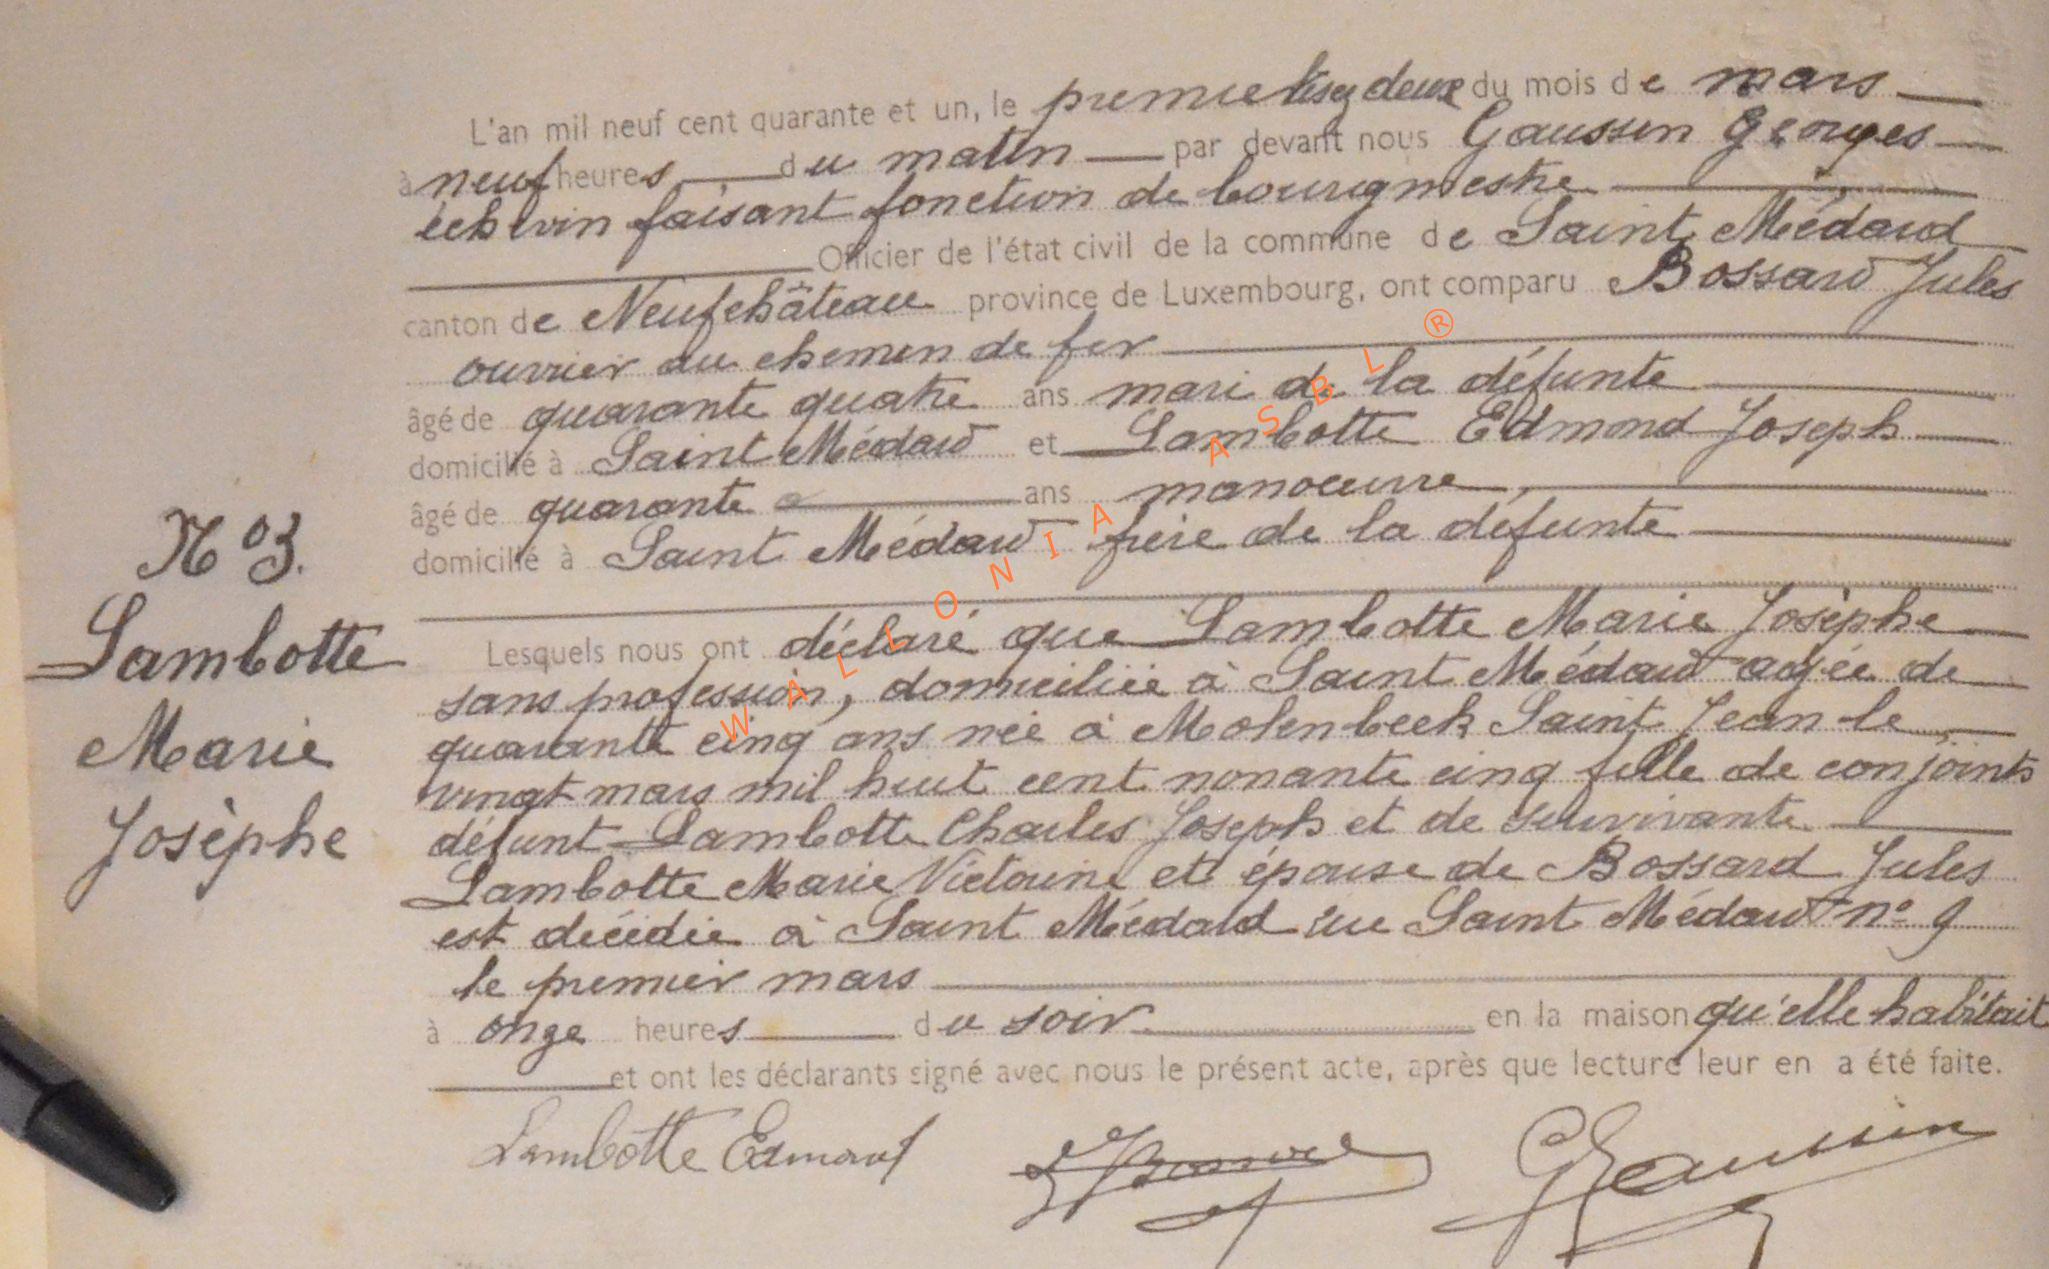 L'an mil neuf cent quarante et un, le premier lisez deux du mois de mars
à neuf heures du matin par devant nous Gaussin Georges
échevin faisant fonction de bourgmestre
Officier de l'état civil de la commune de Saint Médard
canton de Neufchâteau province de Luxembourg, ont comparu Bossard Jules
ouvrier au chemin de fer
âgé de quarante quatre ans mari de la défunte
domicilié à Saint Médard et Lambotte Edmond Joseph
âgé de quarante ans manoeuvre,
domicilié à Saint Médard frère de la défunte
N° 3.
Lambotte
Marie
Josèphe
Lesquels nous ont déclaré que Lambotte Marie Josèphe
sans profession, domiciliée à Saint Médard agée de
quarante cinq ans née à Molenbeek Saint Jean le
vingt mars mil huit cent nonante cinq fille de conjoints
défunt Lambotte Charles Joseph et de survivante
Lambotte Marie Victorine et épouse de Bossard Jules
est décédée à Saint Médard rue Saint Médard n° 9
le premier mars
à onze heures du soir en la maison qu'elle habitait
et ont les déclarants signé avec nous le présent acte, après que lecture leur en a été faite.
Lambotte Edmond JBossard GGaussin
WALLONIA ASBL ®